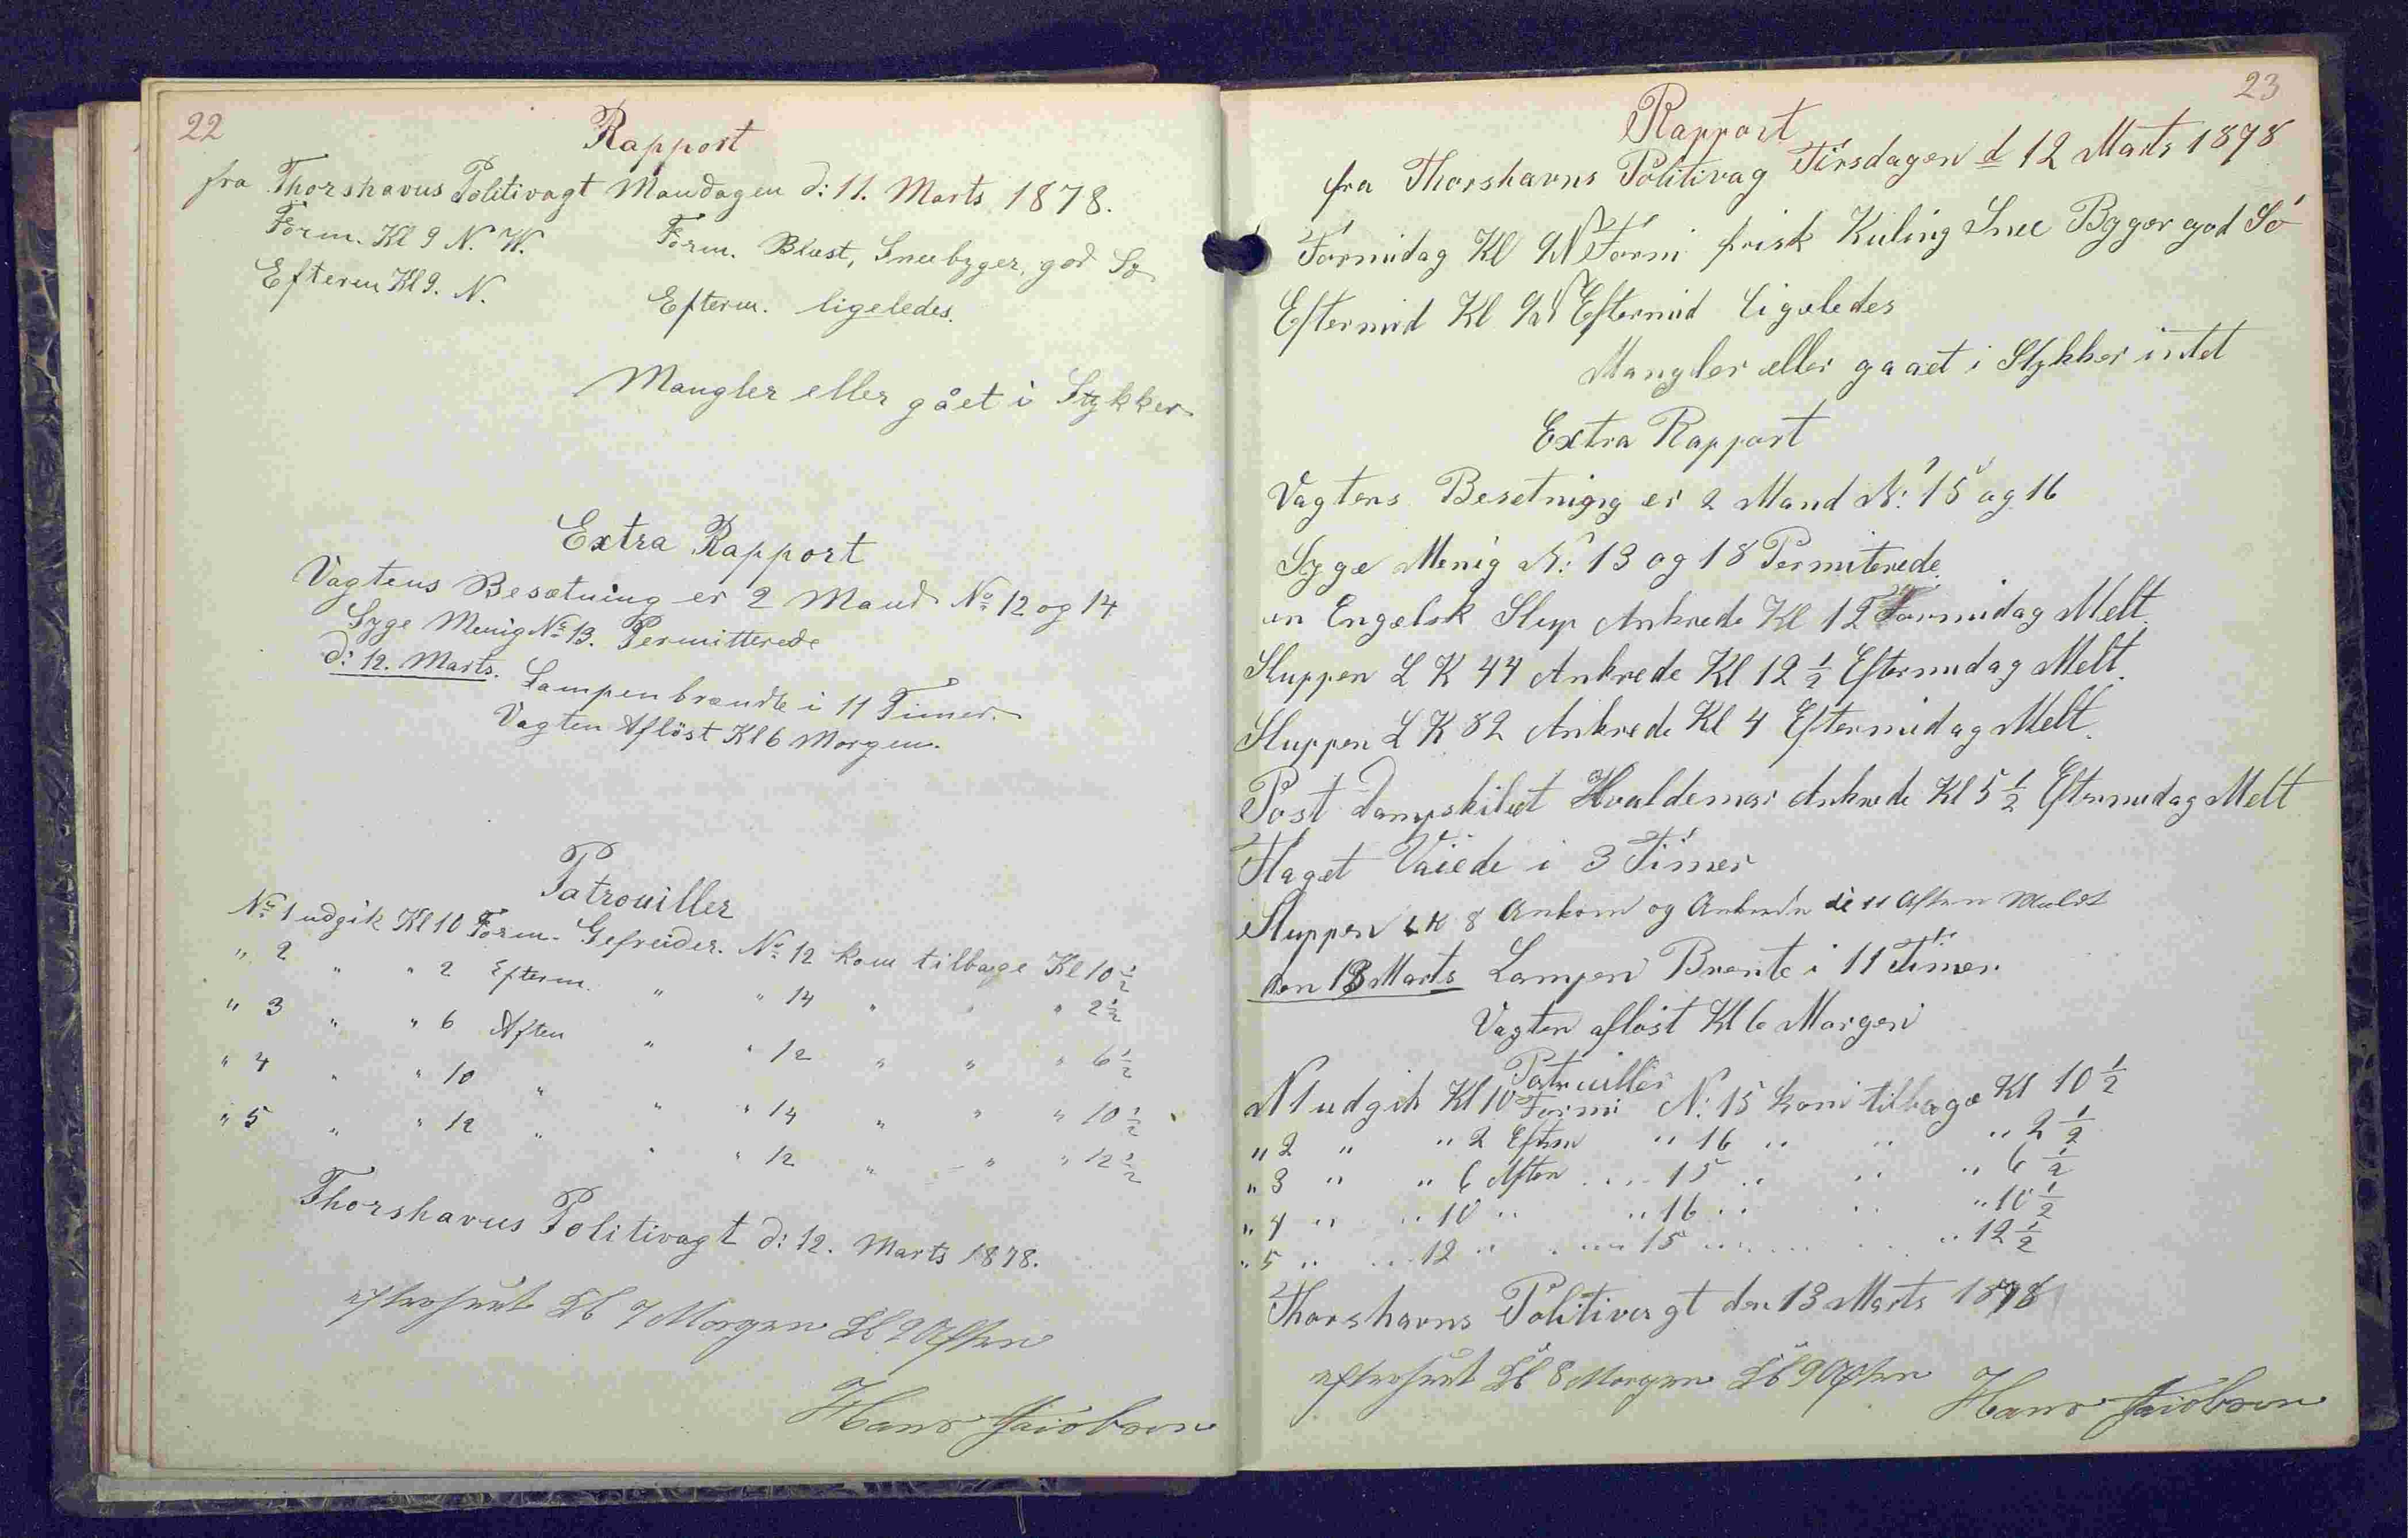 22
Rapport
fra Thorshavns Politivagt Mandagen d: 11. Marts 1878.
Form. Kl 9 N. W. Form. Blæst, Sneebyger, god Sø
Efterm Kl 9. N. Efterm. ligeledes.
Mangler eller gået i Stykker
Extra Rapport
Vagtens Besætning er 2 Mand No 12 og 14
Syge Menig No 13. Permitterede
d: 12. Marts. Lampen brændte i 11 Timer.
Vagten Afløst Kl 6 Morgen.
Patrouiller
No 1 udgik Kl 10 Form. Gefreider. No 12 kom tilbage Kl 10 1/2
" 2 " " 2 Efterm. " " 14 " " " 2 1/2
" 3 " " 6 Aften " " 12 " " " 6 1/2
" 4 " " 10 " " " 14 " " " 10 1/2
" 5 " " 12 " " " 12 " " " 12 1/2
Thorshavns Politivagt d: 12. Marts 1878.
efterseet Kl 7 Morgen Kl 9 Aften
Hans Jacobsen
23
Rapport
fra Thorshavns Politivag Tirsdagen d 12 Marts 1878
Formidag Kl 9 N Formi frisk Kuling Snee Byger god Sö
Eftermid Kl 9 N Eftermid ligeledes
Mangler eller gaaet i Stykker intet
Extra Rapport
Vagtens Besetnigng er 2 Mand N: 15 og 16
Syge Menig N: 13 og 18 Permiterede
en Engelsk Slup Ankrede Kl 12 Formidag Melt.
Sluppen L K 44 Ankrede Kl 12 1/2 Eftermidag Melt.
Sluppen L K 82 Ankrede Kl 4 Eftermidag Melt.
Post Dampskibet Hvaldemar Ankrede Kl 5 1/2 Eftermidag Melt
Flaget Vaiede i 3 Timer
Sluppen LK 8 Ankom og Ankrede 11 Aften Meldt
den 13 Marts Lampen Brente i 11 Timer.
Vagten afløst Kl 6 Morgen
Patruiller
N 1 udgik Kl 10 Formi N: 15 kom tilbage Kl 10 1/2
" 2 " " 2 Efterm " 16 " " " 2 1/2
" 3 " " 6 Aften " 15 " " " 6 1/2
" 4 " " 10 " " 16 " " " 10 1/2
" 5 " " 12 " " 15 " " " 12 1/2
Thorshavns Politivagt den 13 Marts 1878
efterseet Kl 8 Morgen Kl 9 Aften
Hans Jacobsen